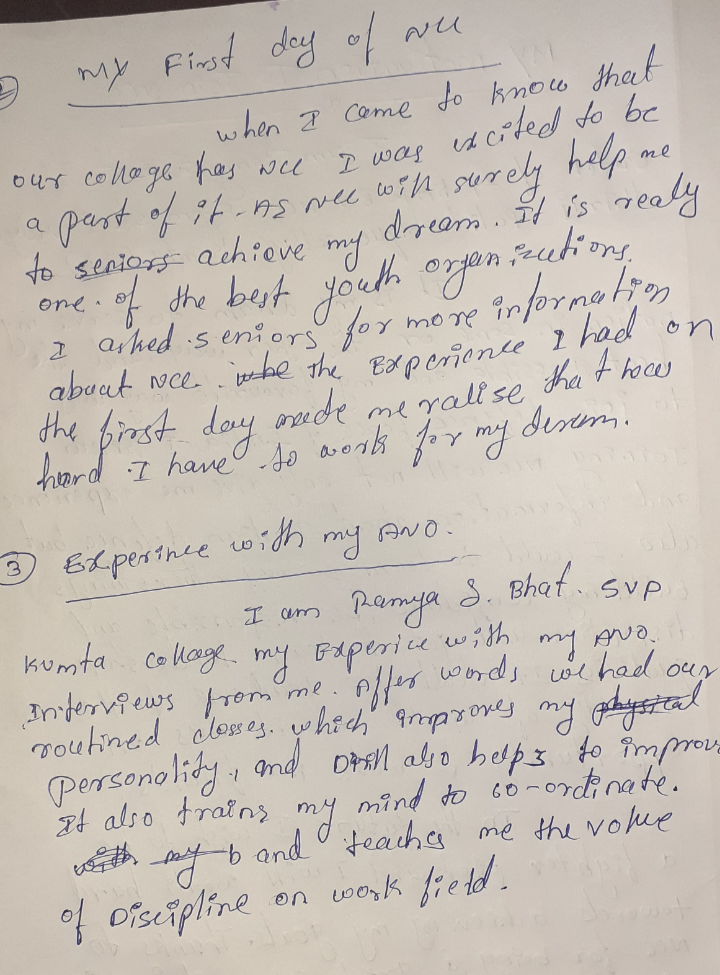 My First day of NCC
when I came to know that
our collage has NCC I was excited to be
a part of it. As NCC will surely help me
to seniors achieve my dream. It is realy
one of the best youth organizations.
I asked seniors for more information
abuat NCC. the Experience I had on
the first day made me ralise that how
hard I have to work for my deram.
3 Experince with my ANO.
I am Ramya S. Bhat. SVP
Kumta collage my Experice with my ANO.
Interviews from me. After words we had our
routined classes. which improves my physical
personality, and Drill also helps to improv
It also trains my mind to co-ordinate.
with my b and teaches me the volue
of Discipline on work field.